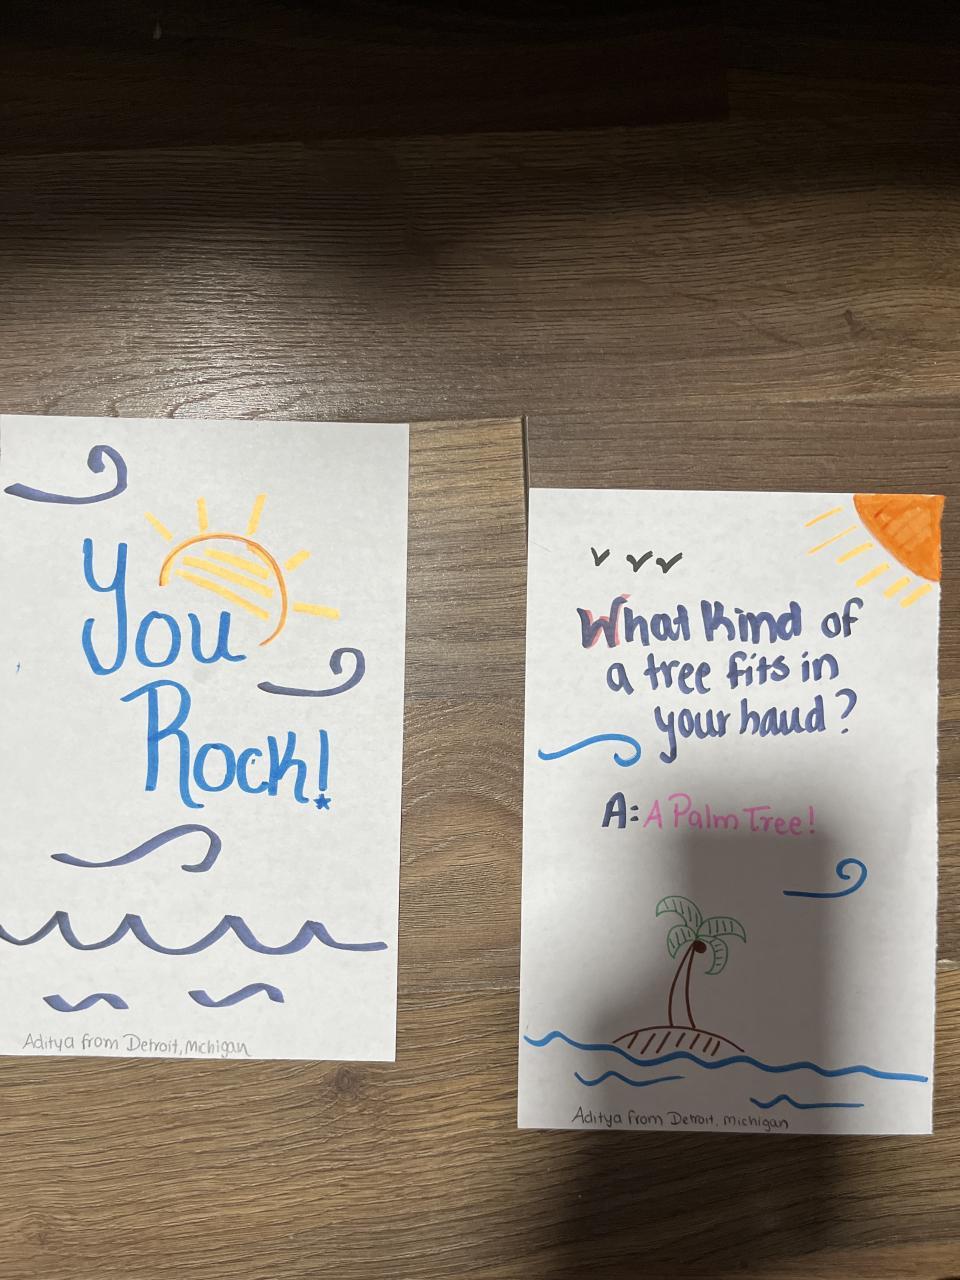 You
Rock!
Aditya from Detroit, Michigan
What Kind of
a tree fits in
your hand?
A: A Palm Tree!
Aditya from Detroit, Michigan